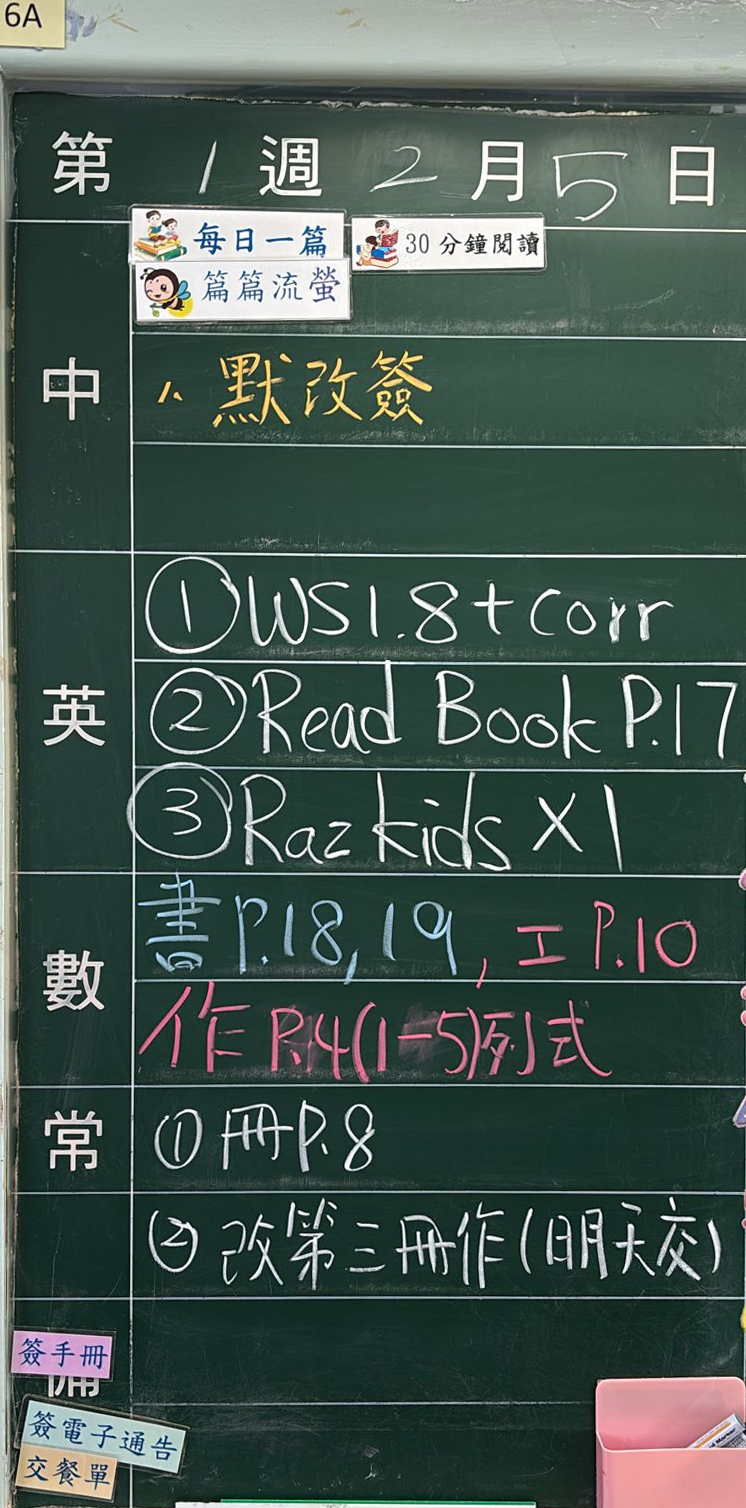 6A
第 1 週 2 月 5 日
每日一篇 30 分鐘閱讀
篇篇流螢
中 八. 默改簽
英
① WS1.8+Corr
② Read Book P.17
③ Raz kids X1
數
書 P.18,19, 工 P.10
作 P.4(1-5)列式
常
① 冊P.8
② 改第三冊作(明天交)
簽手冊
備
簽電子通告
交餐單